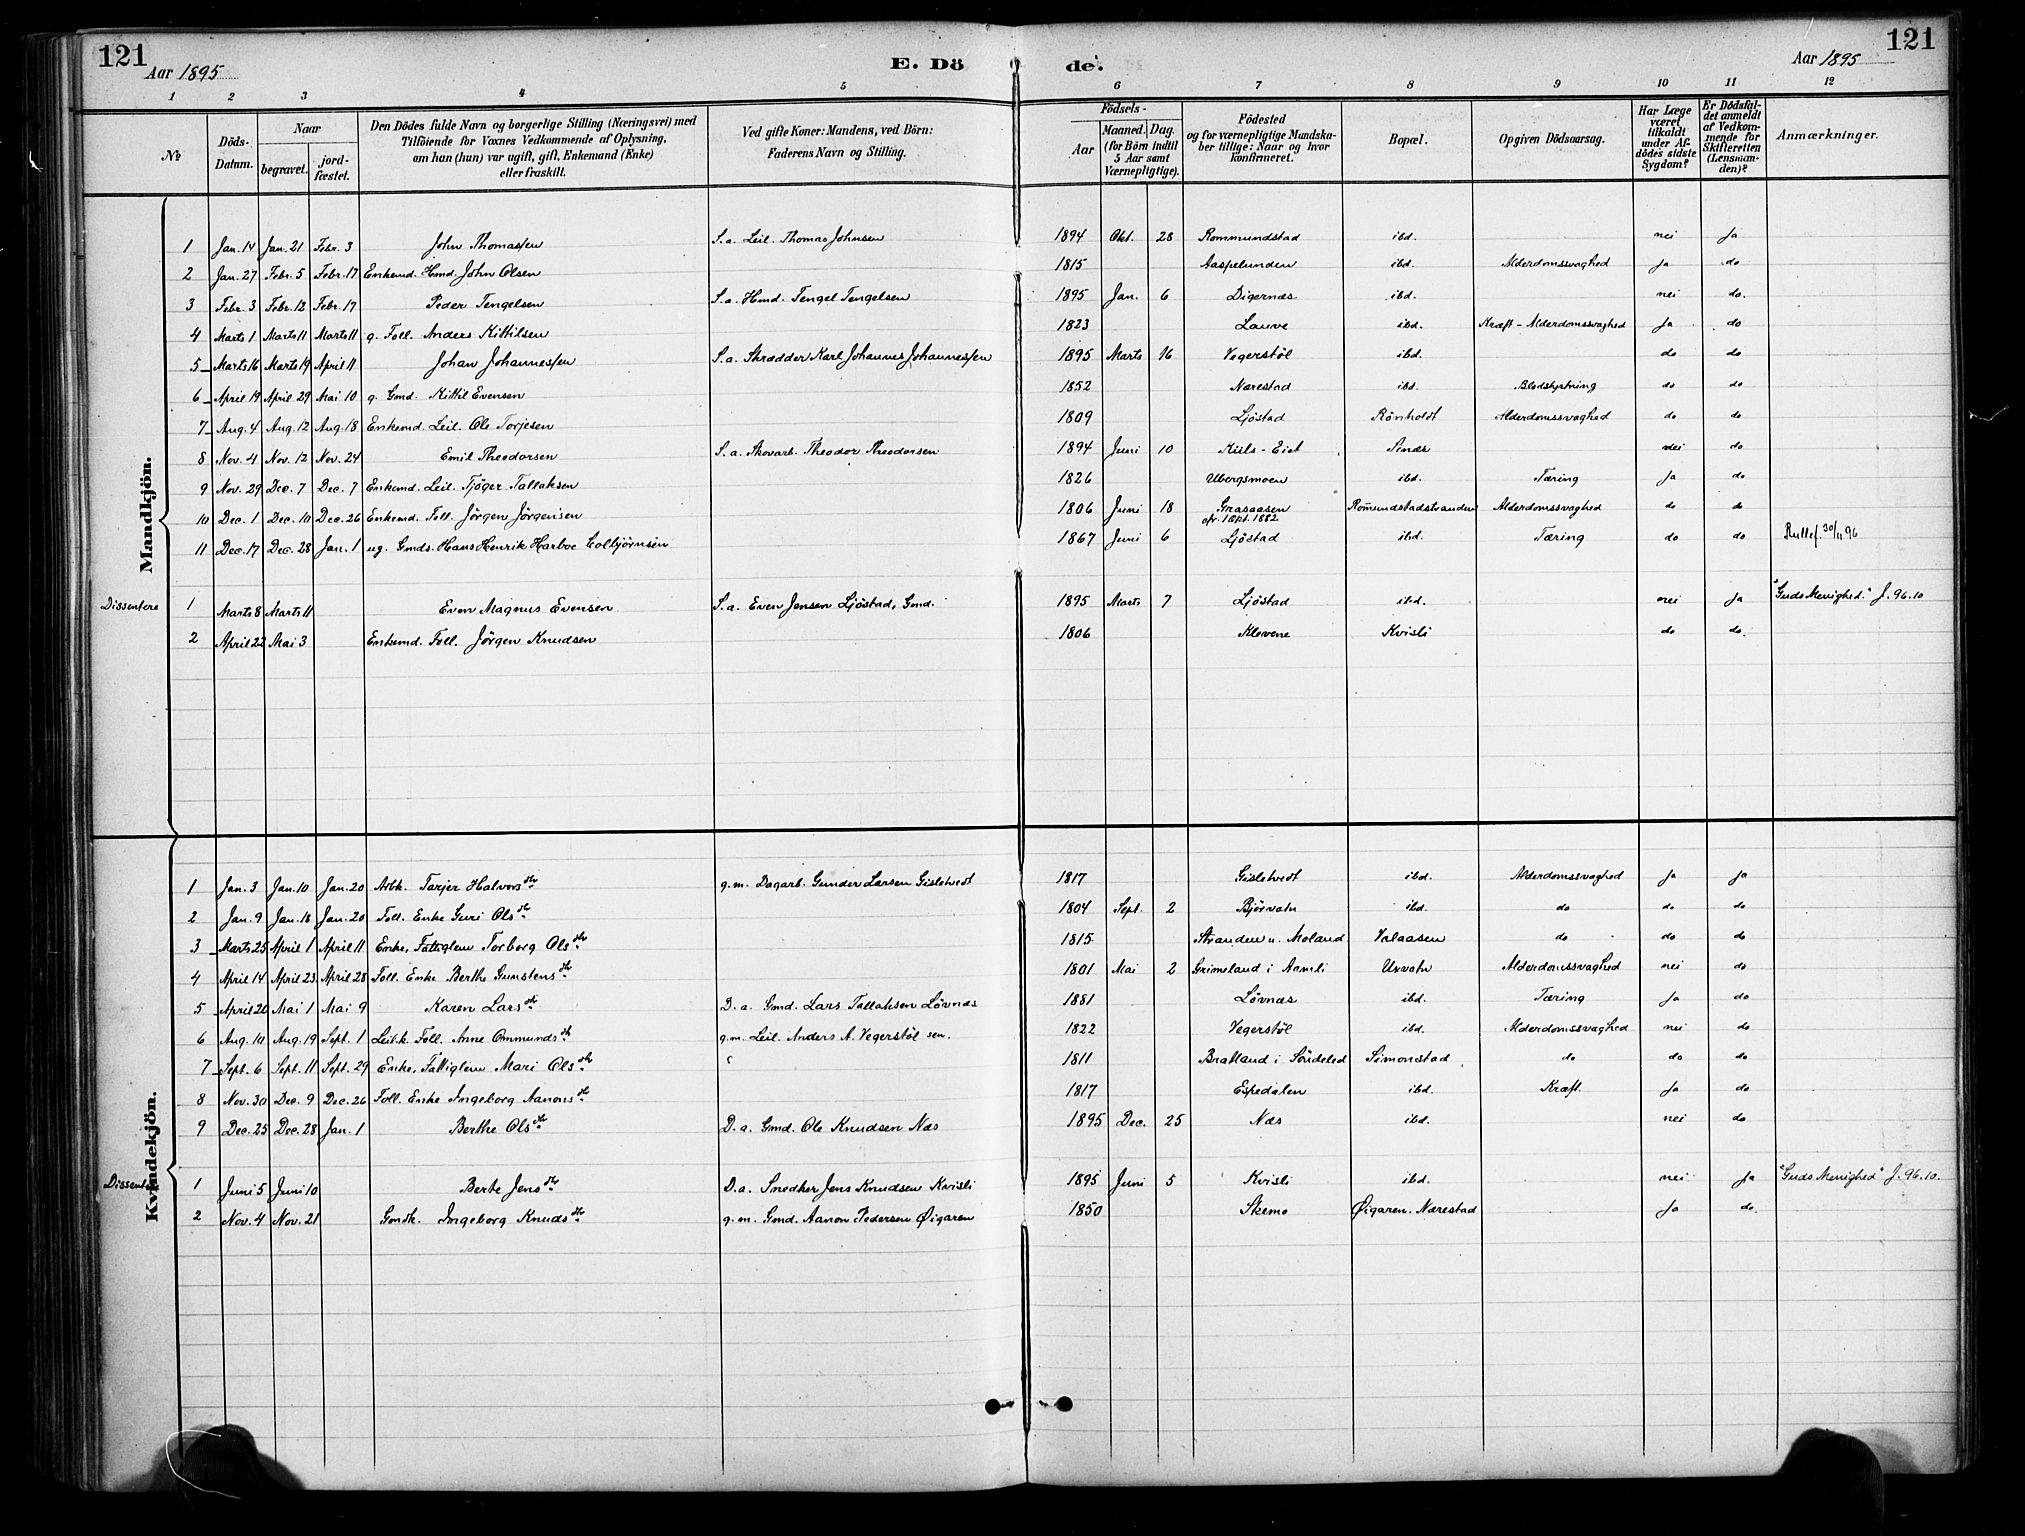 121
Aar 1895
E. Dö de.
Aar 1895
121
1 2 3 4 5 6 7 8 9 10 11 12
№
Döds-Datum.
Naar
begravet.
jord-fæstet.
Den Dödes fulde Navn og borgerlige Stilling (Næringsvei) med
Tilföiende for Voxnes Vedkommende af Oplysning,
om han (hun) var ugift, gift, Enkemand (Enke)
eller fraskilt.
Ved gifte Koner: Mandens, ved Börn:
Faderens Navn og Stilling.
Födsels-
Aar
Maaned. Dag.
(for Börn indtil
5 Aar samt
Værnepligtige).
Födested
og for værnepligtige Mandska-
ber tillige: Naar og hvor
konfirmeret.
Bopæl.
Opgiven Dödsaarsag.
Har Læge
været
tilkaldt
under Af-
dödes sidste
Sygdom?
Er Dödsfal-
det anmeldt
af Vedkom-
mende for
Skifteretten
(Lensman-
den)?
Anmærkninger.
Mandkjön.
1 Jan. 14 Jan. 21 Febr. 3 John Thomassen S. a. Leil. Thomas Johnsen 1894 Okt. 28 Rommundstad ibd. nei ja
2 Jan. 27 Febr. 5 Febr. 17 Enkemd. Hmd. John Olsen 1815 Aaspelunden ibd. Alderdomssvaghed ja do
3 Febr. 3 Febr. 12 Febr. 17 Peder Tengelsen S. a. Hmd. Tengel Tengelsen 1895 Jan. 6 Digernæs ibd. nei do.
4 Marts 1 Marts 11 Marts 11 g. Foll. Anders Kittilsen 1823 Lauve ibd. Kræft-Alderdomssvaghed ja do
5 Marts 16 Marts 19 April 11 Johan Johannessen S. a. Skrædder Karl Johannes Johannessen 1895 Marts 16 Vegerstöl ibd. do do
6 April 19 April 29 Mai 10 g. Gmd. Kittil Evensen 1852 Nærestad ibd. Blodstyrtning do do
7 Aug. 4 Aug. 12 Aug. 18 Enkemd. Leil. Ole Torjesen 1809 Ljöstad Rönholdt Alderdomssvaghed do do
8 Nov. 4 Nov. 12 Nov. 24 Emil Theodorsen S. a. Skovarb. Theodor Theodorsen 1894 Juni 10 Kiils-Eiet Sinæs nei do
9 Nov. 29 Dec. 7 Dec. 7 Enkemd. Leil. Tjöger Tallaksen 1826 Ubergsmoen ibd. Tæring ja do
10 Dec. 1 Dec. 10 Dec. 26 Enkemd. Foll. Jörgen Jörgensen 1806 Juni 18 Grasaasen Romundstadstranden Alderdomssvaghed do do
11 Dec. 17 Dec. 28 Jan. 1 ug. Gmds. Hans Henrik Harboe Colbjørnsen 1867 Juni 6 1882 Ljöstad ibd. Tæring do do Rullef. 30/11 96
Dissentere 1 Marts 8 Marts 11 Even Magnus Evensen S. a. Even Jensen Ljöstad, Gmd. 1895 Marts 7 Ljöstad ibd. nei ja "Guds Menighed." J. 96.10
2 April 22 Mai 3 Enkemd. Foll. Jörgen Knudsen 1806 Klovene Kvisli do do.
Kvindekjön.
1 Jan. 3 Jan. 10 Jan. 20 Arbk. Tarjer Halvorsdtr g. m. Dagarb. Gunder Larsen Gisletvedt 1817 Gisletvedt ibd. Alderdomssvaghed ja ja
2 Jan. 9 Jan. 18 Jan. 20 Foll. Enke Guri Olsdtr 1804 Sept. 2 Bjørvatn ibd. do do do
3 Marts 25 April 1 April 11 Enke, Fattiglem Torborg Olsdtr 1815 Stranden u. Moland Valaasen do do do
4 April 14 April 23 April 28 Foll. Enke Berthe Gunstensdtr 1801 Mai 2 Grimeland i Aamli Uxvatn Alderdomssvaghed nei do
5 April 20 Mai 1 Mai 9 Karen Larsdtr D. a. Gmd. Lars Tallaksen Lövnæs 1881 Lövnæs ibd. Tæring ja do
6 Aug. 10 Aug. 19 Sept. 1 Leilk. Foll. Anne Ommundsdtr g. m. Leil. Anders A. Vegerstöl sen. 1822 Vegerstöl ibd. Alderdomssvaghed nei do
7 Sept. 6 Sept. 11 Sept. 29 Enke, Fattiglem Mari Olsdtr 1811 Bratland i Söndeled Simonstad do do do
8 Nov. 30 Dec. 9 Dec. 26 Foll. Enke Ingeborg Aanonsdtr 1817 Espedalen ibd. Kræft. ja do
9 Dec. 25 Dec. 28 Jan. 1 Berthe Olsdtr D. a. Gmd. Ole Knudsen Næs 1895 Dec. 25 Næs ibd. nei do
Dissentere 1 Juni 5 Juni 10 Berte Jensdtr D. a. Snedker Jens Knudsen Kvisli 1895 Juni 5 Kvisli ibd. nei ja "Guds Menighed" J. 96.10.
2 Nov. 4 Nov. 21 Gmdk. Ingeborg Knudsdtr g. m. Gmd. Aanon Pedersen Øigaren 1850 Skemo Øigaren. Nærestad ja do.